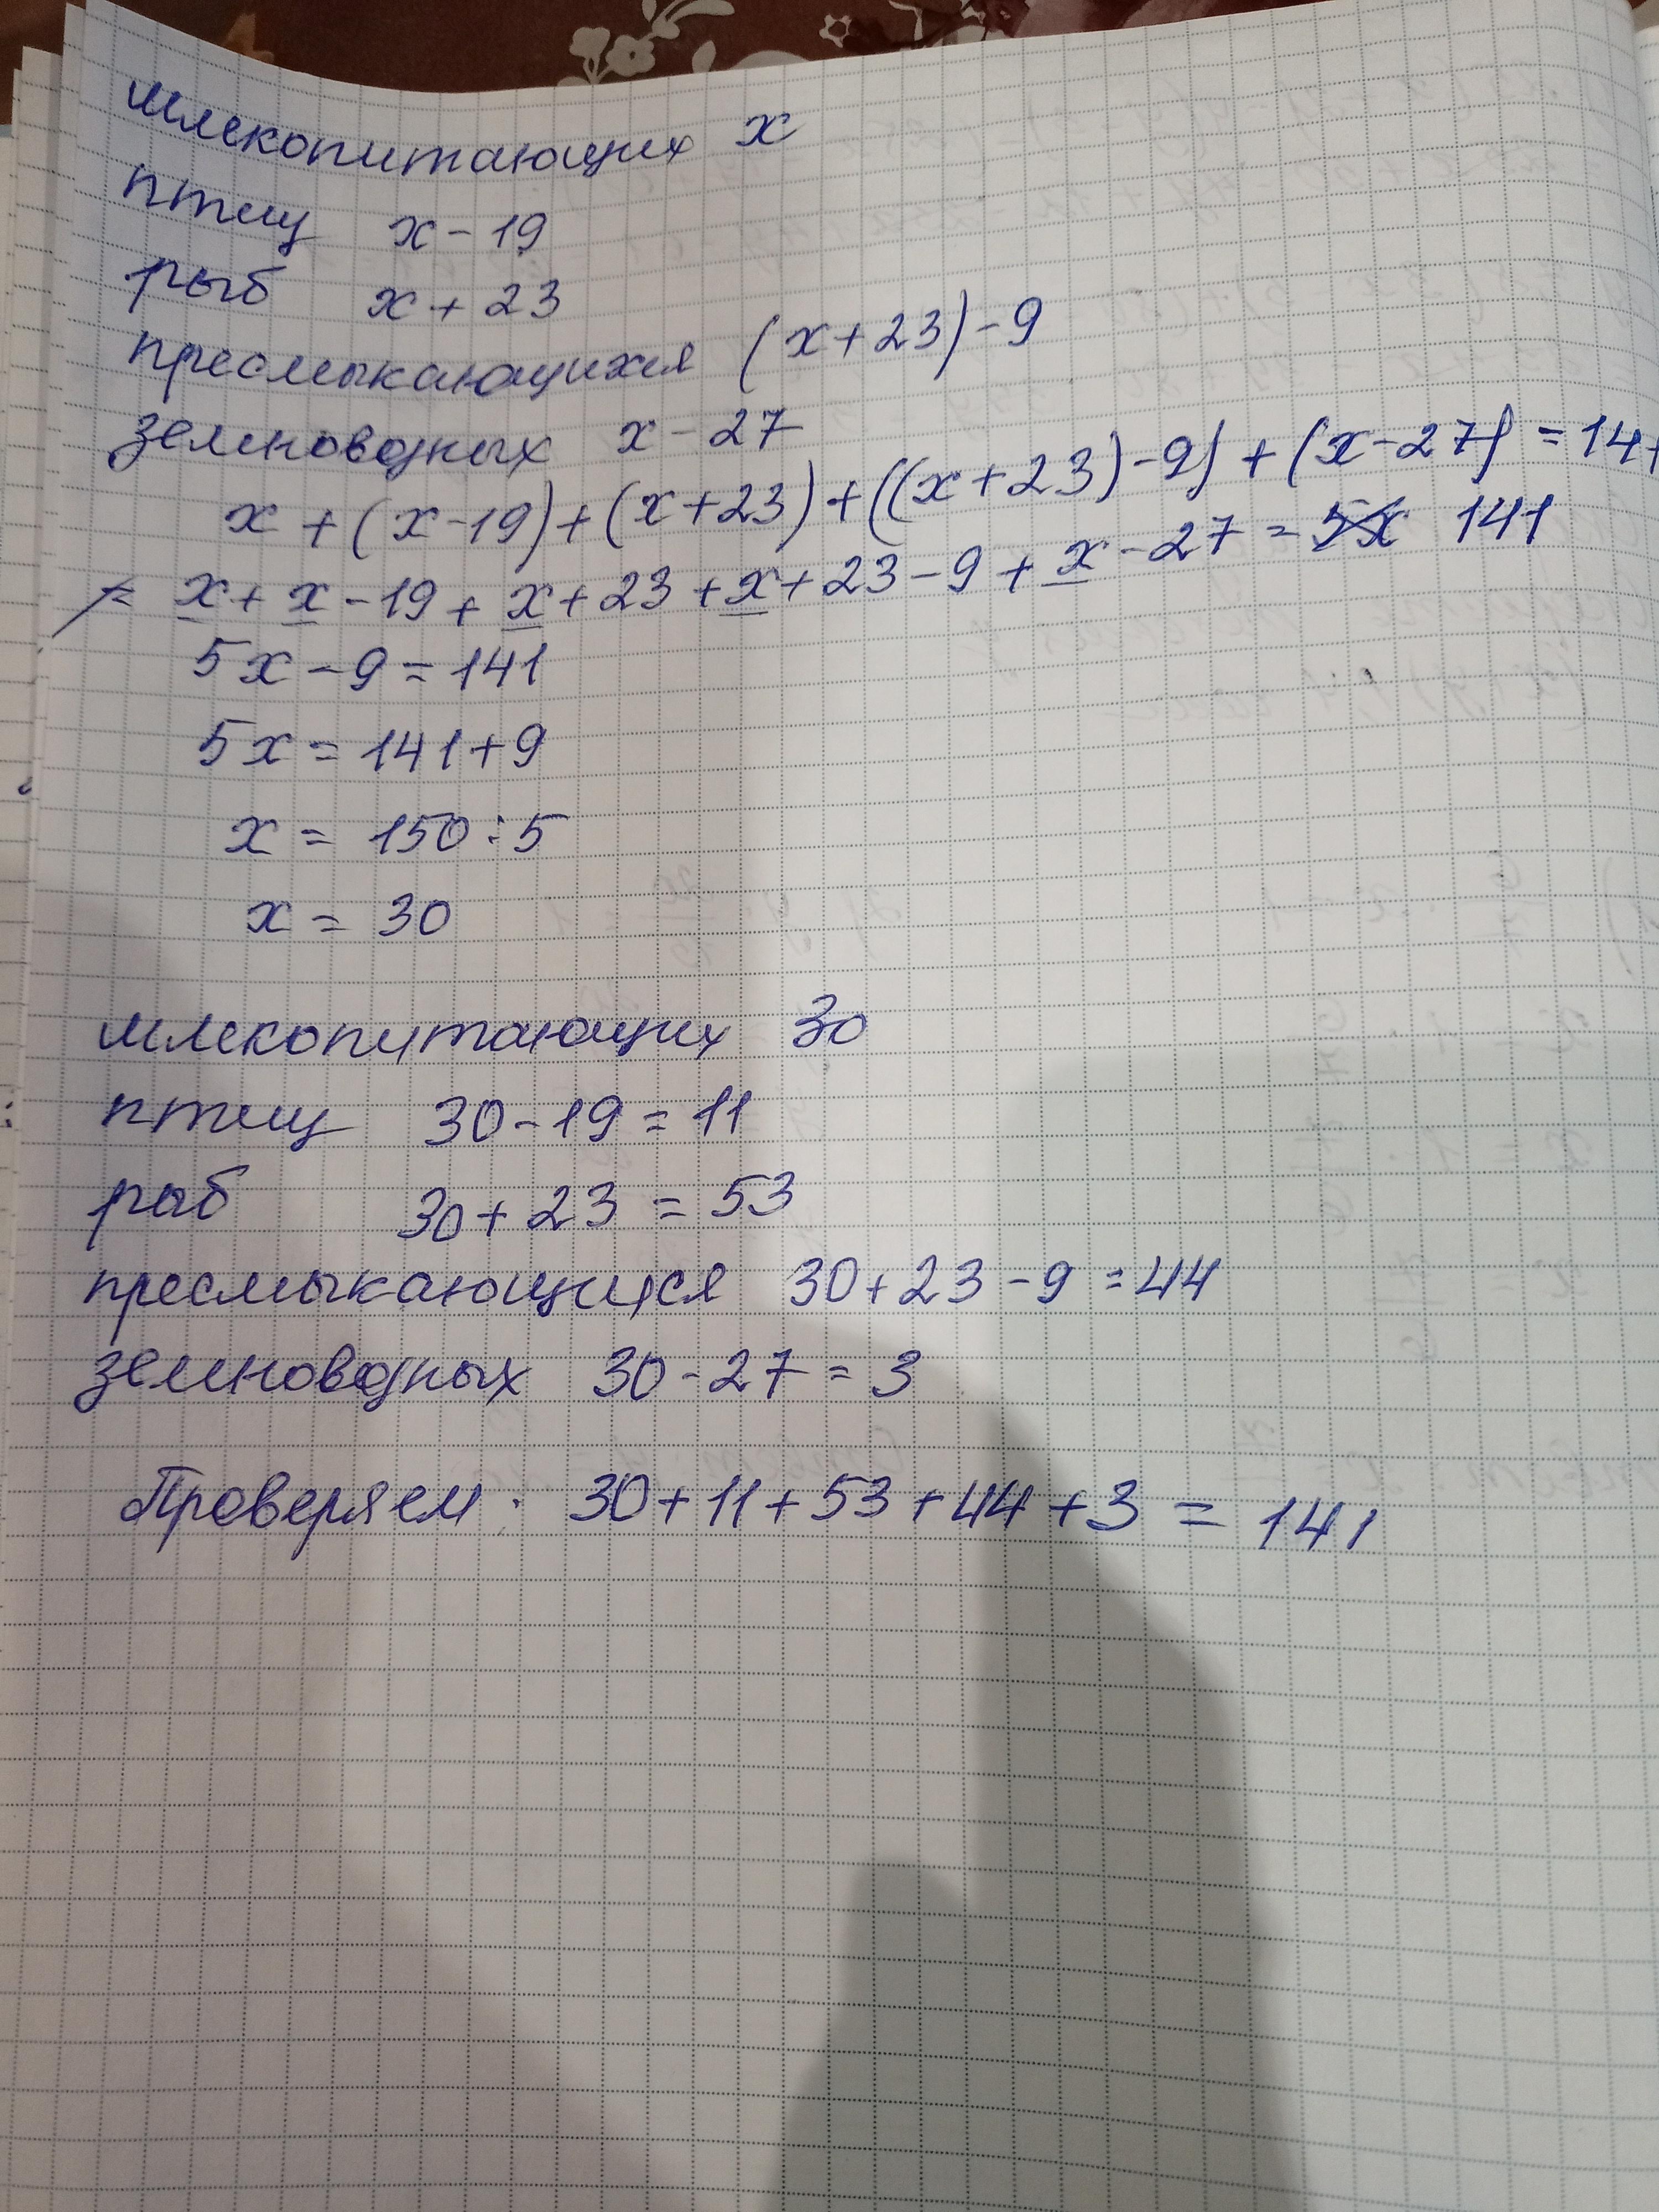 млекопитающих x
птиц x - 19
рыб x + 23
пресмыкающихся (x + 23) - 9
земноводных x - 27
x + (x - 19) + (x + 23) + ((x + 23) - 9) + (x - 27) = 141
= x + x - 19 + x + 23 + x + 23 - 9 + x - 27 = 5x 141
5x - 9 = 141
5x = 141 + 9
x = 150 : 5
x = 30
млекопитающих 30
птиц 30 - 19 = 11
рыб 30 + 23 = 53
пресмыкающихся 30 + 23 - 9 = 44
земноводных 30 - 27 = 3
Проверяем: 30 + 11 + 53 + 44 + 3 = 141